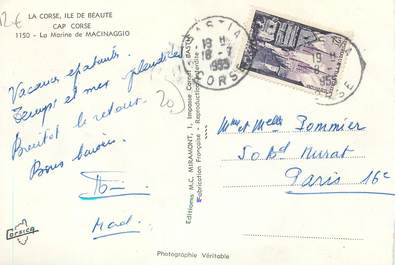 12€
LA CORSE, ILE DE BEAUTÉ
CAP CORSE
1150 - La Marine de MACINAGGIO
Vacances épatantes.
Temps et mer splendides
Bientôt le retour.
Bons baisers.
Mad.
20
Corsica
Editions M.C. MIRAMONT, 1, Impasse Carnot - BASTIA
Fabrication Française - Reproduction
BASTIA
19 H
18 - 7
1955
CORSE
Mme et Melle Pommier
50 Bd Murat
Paris 16e
Photographie Véritable